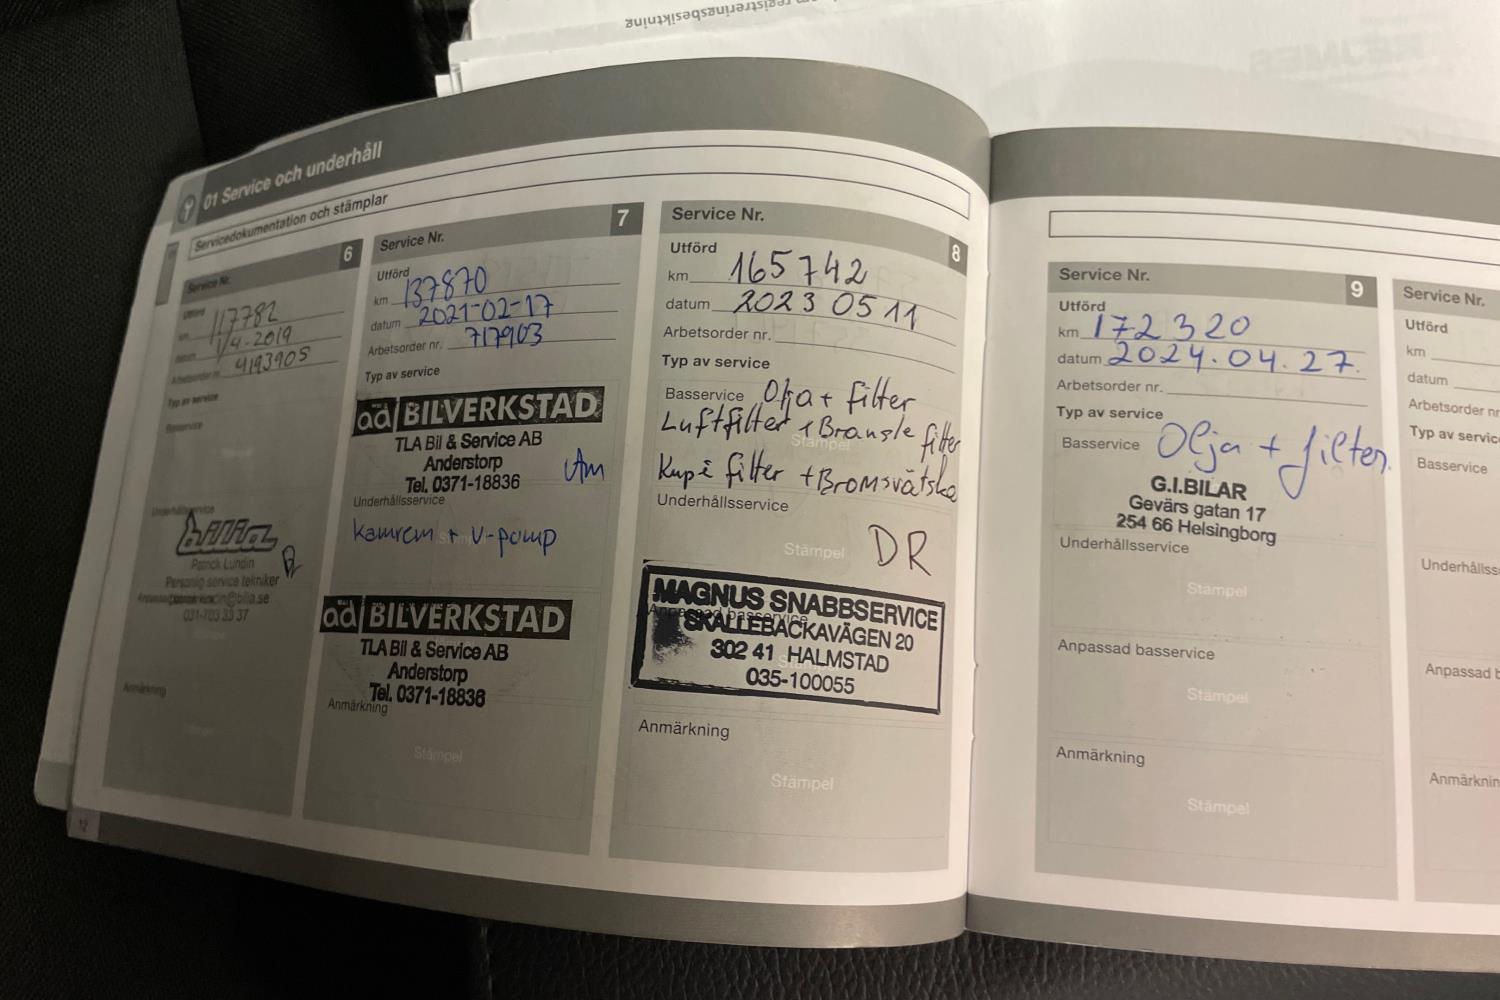 registreringsbesiktning
REJMES
01 Service och underhåll
Servicedokumentation och stämplar
Service Nr. 6
Utförd
km 117782
datum 1/4-2019
Arbetsorder nr 4193905
Typ av service
Basservice
Underhållsservice
bilia
Patrick Lundin
Personlig service tekniker
@bilia.se
031-703 33 37
Anmärkning
12
Service Nr. 7
Utförd
km 137870
datum 2021-02-17
Arbetsorder nr. 717903
Typ av service
ad BILVERKSTAD
TLA Bil & Service AB
Anderstorp
Tel. 0371-18836
Underhållsservice
Kamrem + V-pump
ad BILVERKSTAD
TLA Bil & Service AB
Anderstorp
Tel. 0371-18836
Anmärkning
Stämpel
Service Nr. 8
Utförd
km 165742
datum 2023 05 11
Arbetsorder nr.
Typ av service
Basservice Olja + filter
Luftfilter + Bränsle filter
Stämpel
Kupé filter + Bromsvätska
Underhållsservice
Stämpel
DR
MAGNUS SNABBSERVICE
Anpassad basservice
SKALLEBACKAVÄGEN 20
302 41 HALMSTAD
035-100055
Anmärkning
Stämpel
Service Nr. 9
Utförd
km 172320
datum 2024.04.27.
Arbetsorder nr.
Typ av service
Basservice Olja + filter.
G.I.BILAR
Gevärs gatan 17
254 66 Helsingborg
Underhållsservice
Stämpel
Anpassad basservice
Stämpel
Anmärkning
Stämpel
Service Nr.
Utförd
km
datum
Arbetsorder nr
Typ av servic
Basservice
Underhållss
Anpassad b
Anmärknin